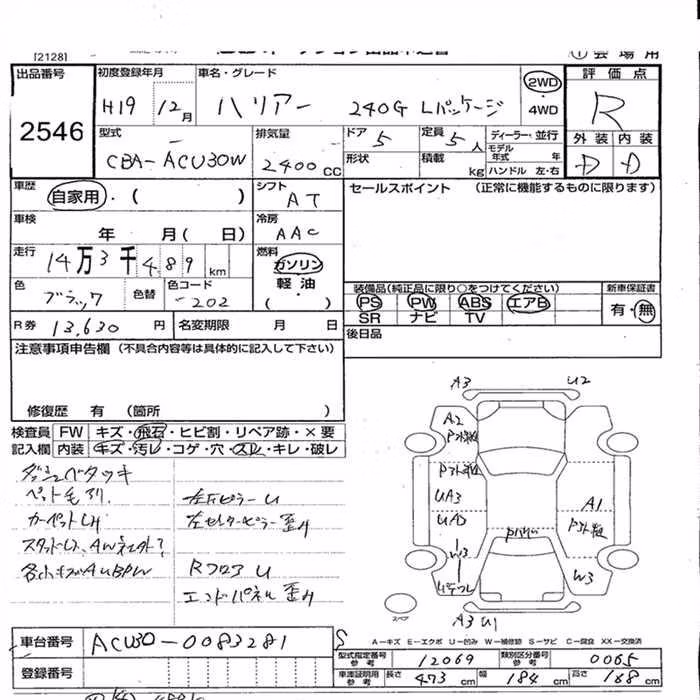 [2128]
① 会場用
出品番号
2546
初度登録年月
H19 12月
車名・グレード
ハリアー 240G Lパッケージ
2WD
・
4WD
評価点
R
外装 内装
D D
型式
CBA-ACU30W
排気量
2400cc
ドア 5
定員 5人
形状
積載 kg
ディーラー・並行
モデル年式 年
ハンドル 左・右
車歴
自家用・( )
シフト
AT
セールスポイント (正常に機能するものに限ります)
車検
年 月( 日)
冷房
AAC
走行
14万3千489km
燃料
ガソリン
軽油・
( )
色
ブラック
色替
色コード
202
装備品(純正品に限り○をつけてください)
PS PW ABS エアB
SR ナビ TV
新車保証書
有・無
R券 13,630円
名変期限 月 日
後日品
注意事項申告欄 (不具合内容等は具体的に記入して下さい)
修復歴 有 (箇所 )
検査員記入欄
FW キズ・飛石・ヒビ割・リペア跡・×要
内装 キズ・汚レ・コゲ・穴・スレ・キレ・破レ
ダッシュベタツキ
ペット毛アリ
左Fピラー U
左センターピラー歪み
Rフロア U
エンドパネル歪み
A3 U2
A2
P外板
P外板
UA3
UA3
A1
P外板
W3
W3
A3 U1
スペア
A-キズ E-エクボ U-凹み W-補修跡 S-サビ C-腐食 XX-交換済
車台番号 ACU30-0083281
S
登録番号
型式指定番号 参考 12069
類別区分番号 参考 0065
車庫証明用 参考 長さ 473cm 幅 184cm 高さ 168cm